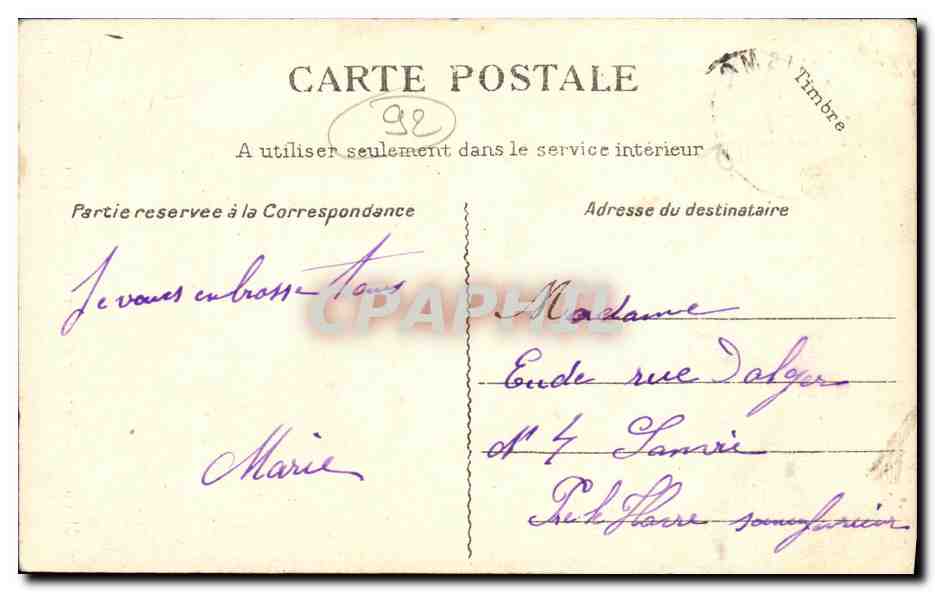 CARTE POSTALE
92
Timbre
A utiliser seulement dans le service intérieur
Partie reservee à la Correspondance
Adresse du destinataire
Je vous enbrasse tous
Marie
CPAPHIL
Madame
Eude rue Dalger
N° 4 Sanvic
Pre le Havre